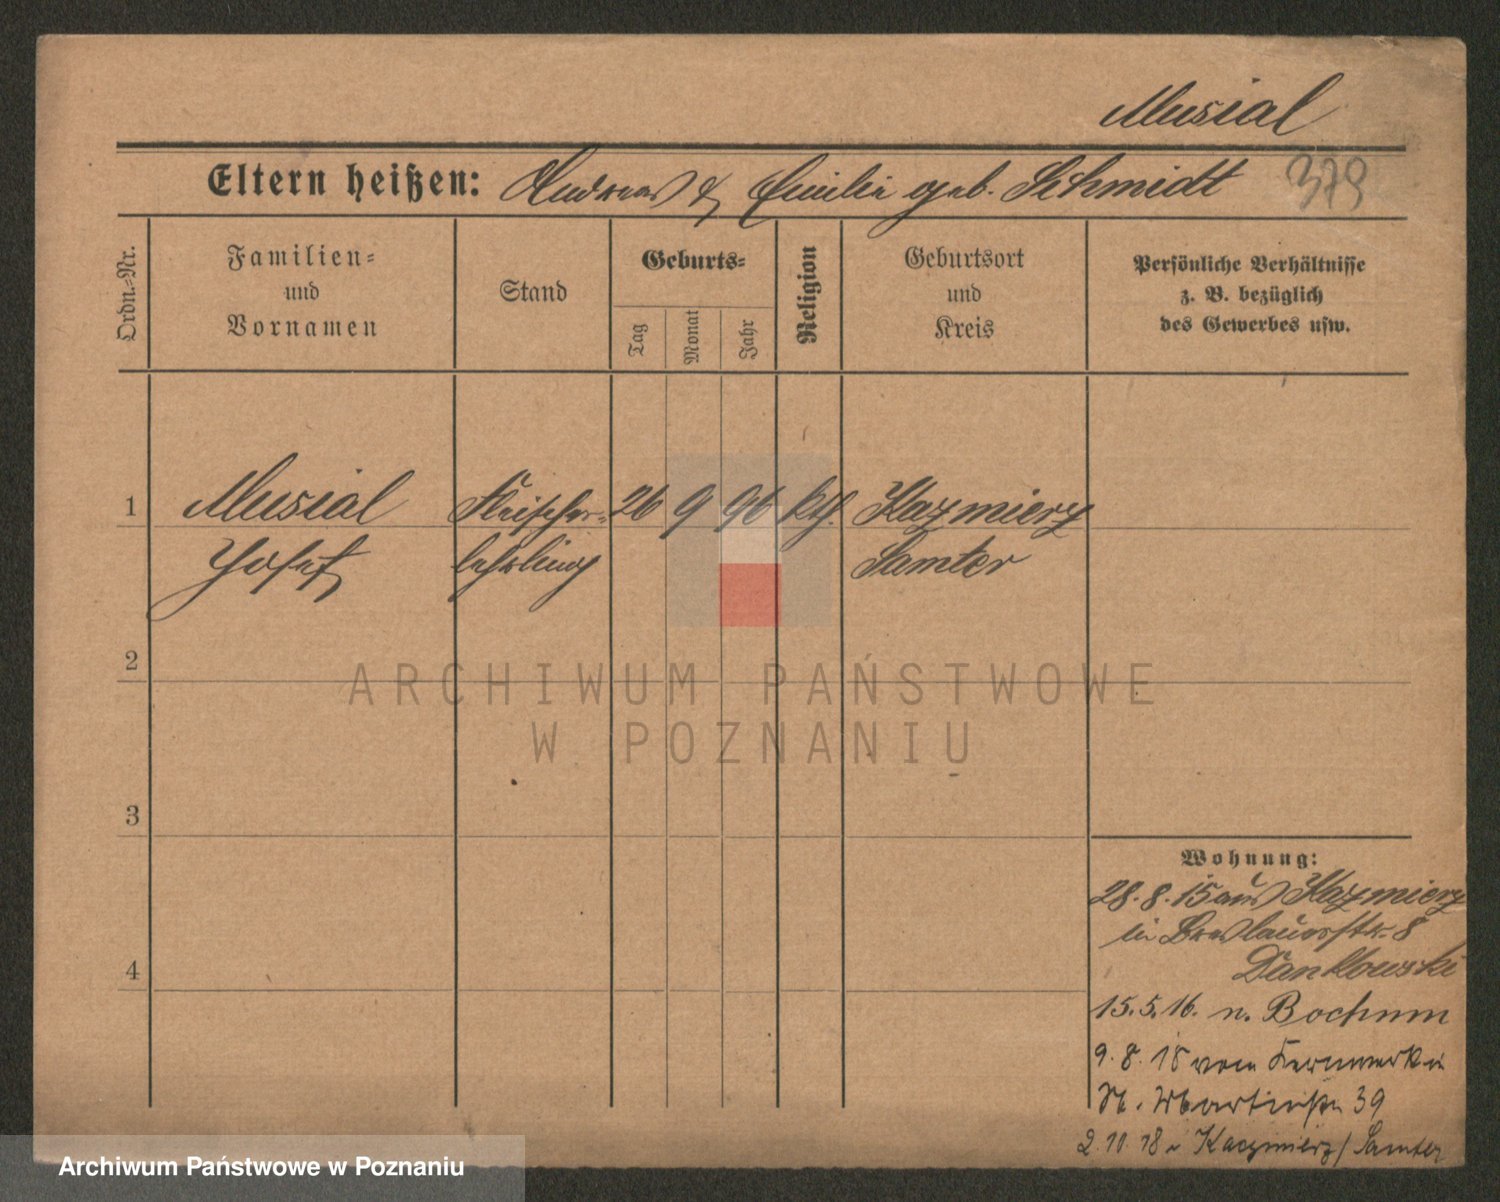 Musial
Eltern heißen: Andreas & Emilie geb. Schmidt 379
Ordn.-Nr.
Familien-
und
Vornamen
Stand
Geburts-
Tag
Monat
Jahr
Religion
Geburtsort
und
Kreis
Persönliche Verhältnisse
z. B. bezüglich
des Gewerbes usw.
1 Musial Fleischer- 26 9 96 kth. Kazmierz
Josef lehrling Samter
2
3
4
ARCHIWUM PAŃSTWOWE
W POZNANIU
Wohnung:
28.8.15 aus Kazmierz
in Breslauerstr. 8
Dankowski
15.5.16. n. Bochum
9.8.18 vom Kernwerk in
St. Martinstr. 39
2.11.18 n Kaczmierz/Samter
Archiwum Państwowe w Poznaniu